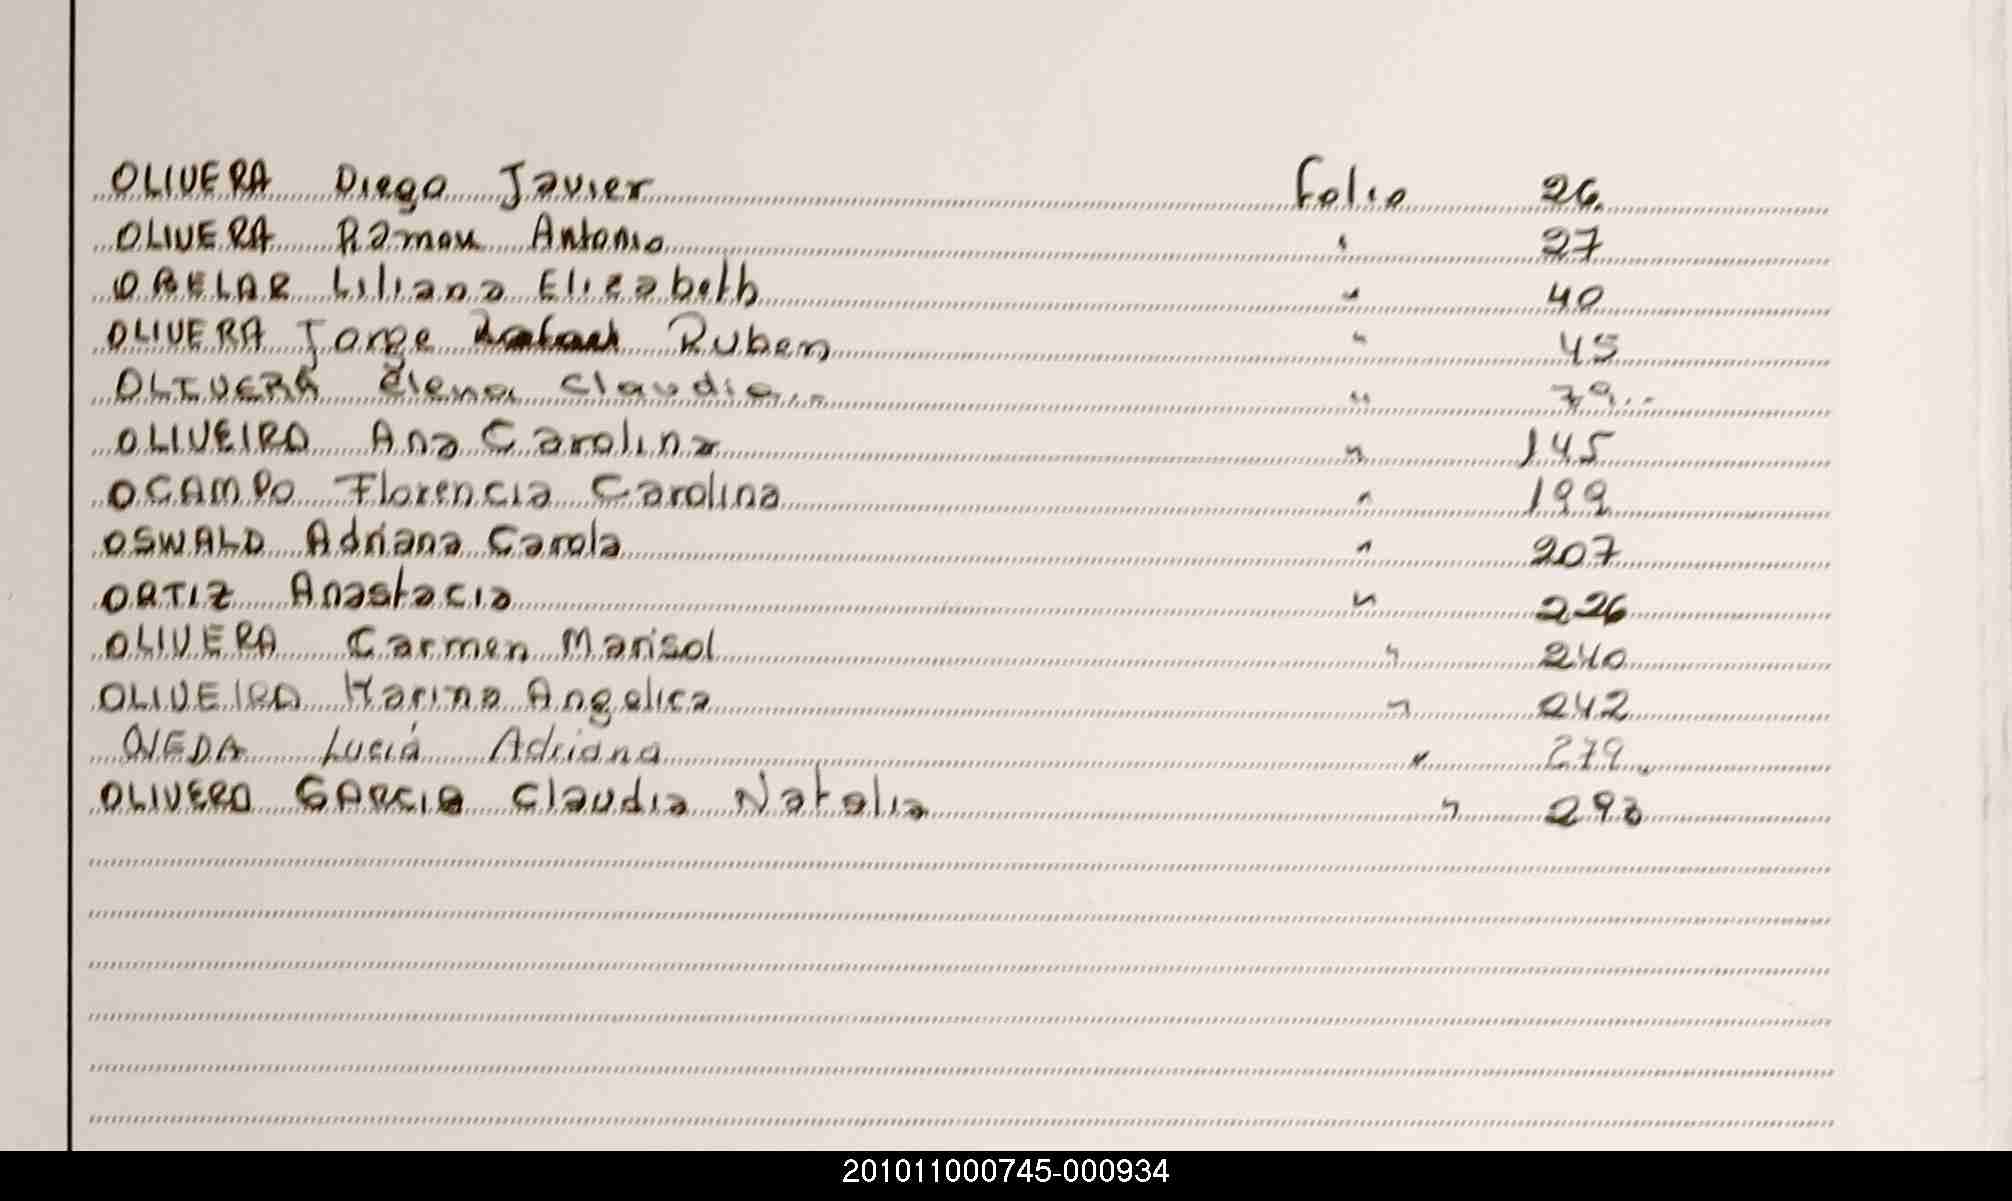 OLIVERA Diego Javier folio 26.
OLIVERA Ramon Antonio " 27
OBELAR Liliana Elizabeth " 40
OLIVERA Jorge Rafael Ruben " 45
OLIVERA Elena Claudia.. " 79..
OLIVEIRO Ana Carolina " 145
OCAMPO Florencia Carolina " 199
OSWALD Adriana Carola " 207
ORTIZ Anastacia " 226
OLIVERA Carmen Marisol " 240
OLIVEIRO Marina Angelica " 242
OJEDA Lucía Adriana " 279
OLIVERO GARCIA Claudia Natalia " 293
201011000745-000934